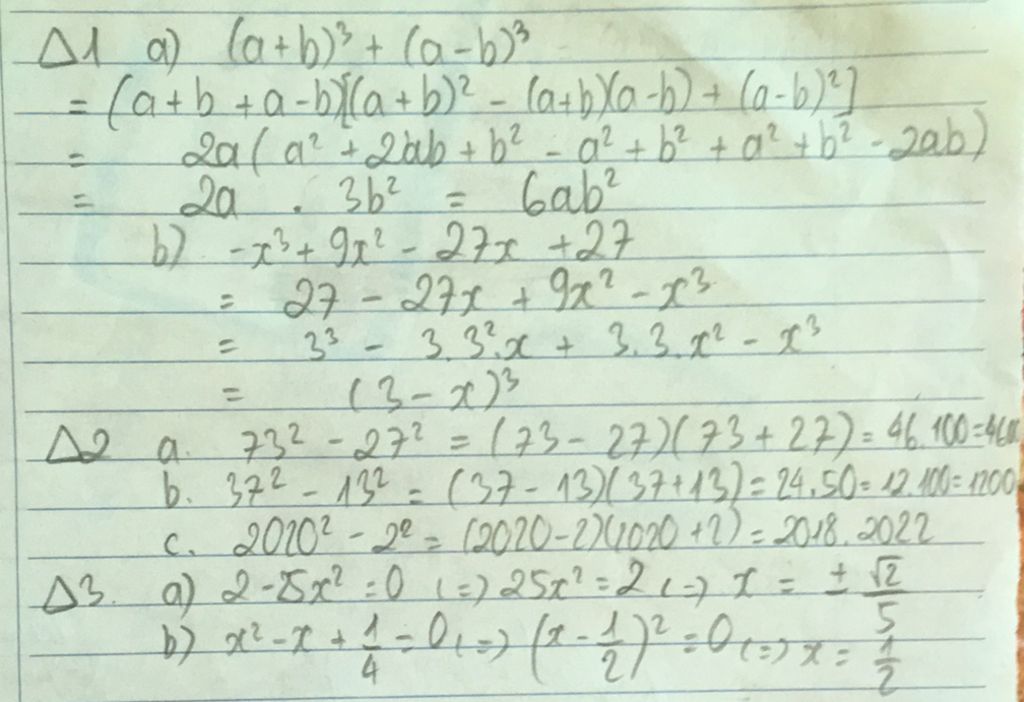 Δ1 a) (a+b)³ + (a-b)³
= (a+b+a-b)[(a+b)² - (a+b)(a-b) + (a-b)²]
= 2a(a² + 2ab + b² - a² + b² + a² + b² - 2ab)
= 2a . 3b² = 6ab²
b) -x³ + 9x² - 27x + 27
= 27 - 27x + 9x² - x³
= 3³ - 3.3².x + 3.3.x² - x³
= (3-x)³
Δ2 a. 73² - 27² = (73-27)(73+27) = 46.100 = 4600
b. 37² - 13² = (37-13)(37+13) = 24.50 = 12.100 = 1200
c. 2020² - 2² = (2020-2)(2020+2) = 2018.2022
Δ3. a) 2-25x² = 0 (=) 25x² = 2 (=) x = ± √2/5
b) x² - x + 1/4 = 0 (=) (x - 1/2)² = 0 (=) x = 1/2